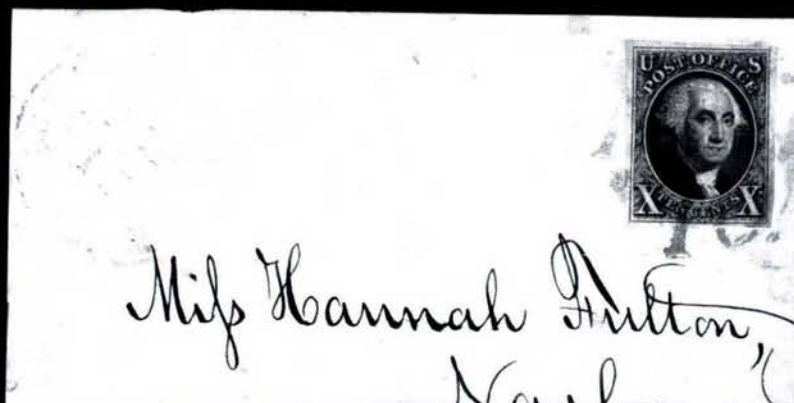 U S
POST OFFICE
X TEN CENTS X
Miſs Hannah Fulton,